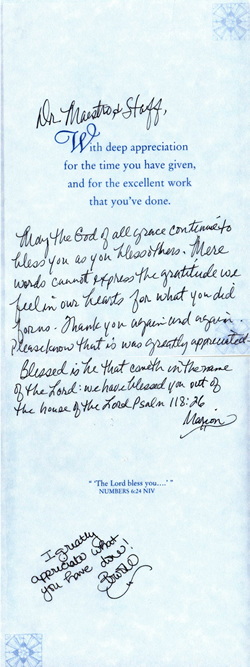 Dr. Maestro & Staff,
With deep appreciation
for the time you have given,
and for the excellent work
that you've done.
May the God of all grace continue to
bless you as you bless others. Mere
words cannot express the gratitude we
feel in our hearts for what you did
for us. Thank you again and again.
Please know that is was greatly appreciated.
Blessed is he that cometh in the name
of the Lord: we have blessed you out of
the house of the Lord Psalm 118:26
Marion
"The Lord bless you...."
NUMBERS 6:24 NIV
I greatly
appreciate what
you have done!